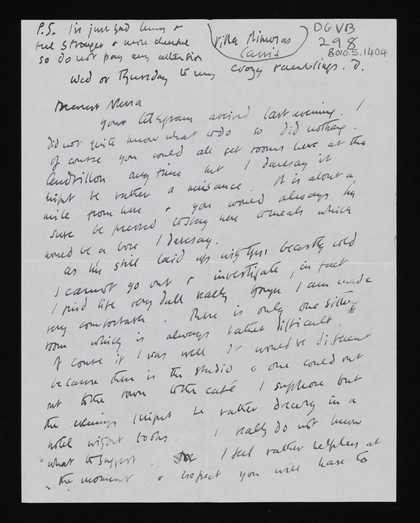 P.S. I've just had lunch &
feel stronger & more cheerful
so do not pay any attention
to my crazy ramblings. D.
Villa Mimosas
Cassis
DGVB
298
8010.5.1404
Wed or Thursday
Dearest Nessa
Your telegram arrived last evening. I
did not quite know what to do so did nothing.
Of course you could all get rooms here at the
Cendrillon any time but I daresay it
might be rather a nuisance. It is about a
mile from here & you would always be
sure be pressed to stay here to meals which
would be a bore I daresay.
As I'm still laid up with this beastly cold
I cannot go out & investigate, in fact
I find life very dull really though I am made
very comfortable. There is only one sitting
room which is always rather difficult.
Of course if I was well it would be different
because there is the studio & one could out
out to the town to the café I suppose but
the evenings might be rather dreary in a
hotel without books. I really do not know
what to suggest. I feel rather helpless at
the moment & expect you will have to